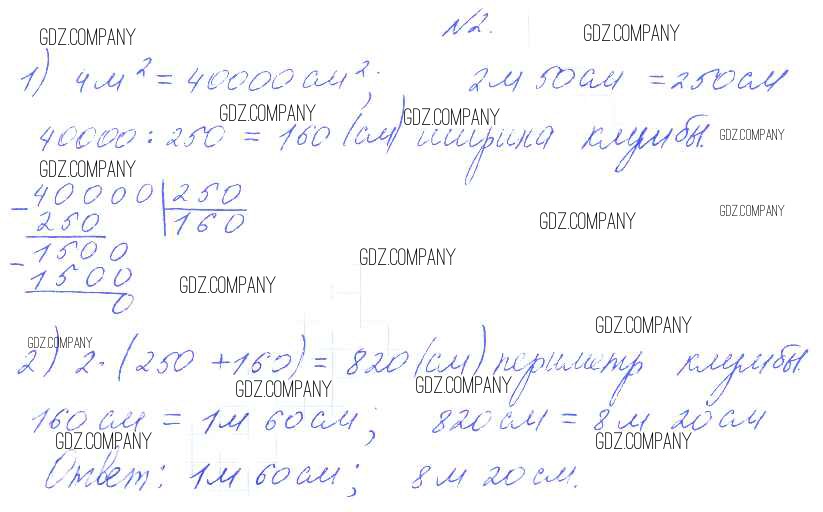 GDZ.COMPANY №2. GDZ.COMPANY
1) 4м² = 40000см²; 2м 50см = 250см
GDZ.COMPANY GDZ.COMPANY
40000 : 250 = 160 (см) ширина клумбы. GDZ.COMPANY
GDZ.COMPANY
- 40000 | 250
250 160 GDZ.COMPANY GDZ.COMPANY
- 1500 GDZ.COMPANY
1500 GDZ.COMPANY
0
GDZ.COMPANY GDZ.COMPANY
2) 2 · (250 + 160) = 820 (см) периметр клумбы.
GDZ.COMPANY GDZ.COMPANY
160см = 1м 60см; 820см = 8м 20см
GDZ.COMPANY GDZ.COMPANY
Ответ: 1м 60см; 8м 20см.